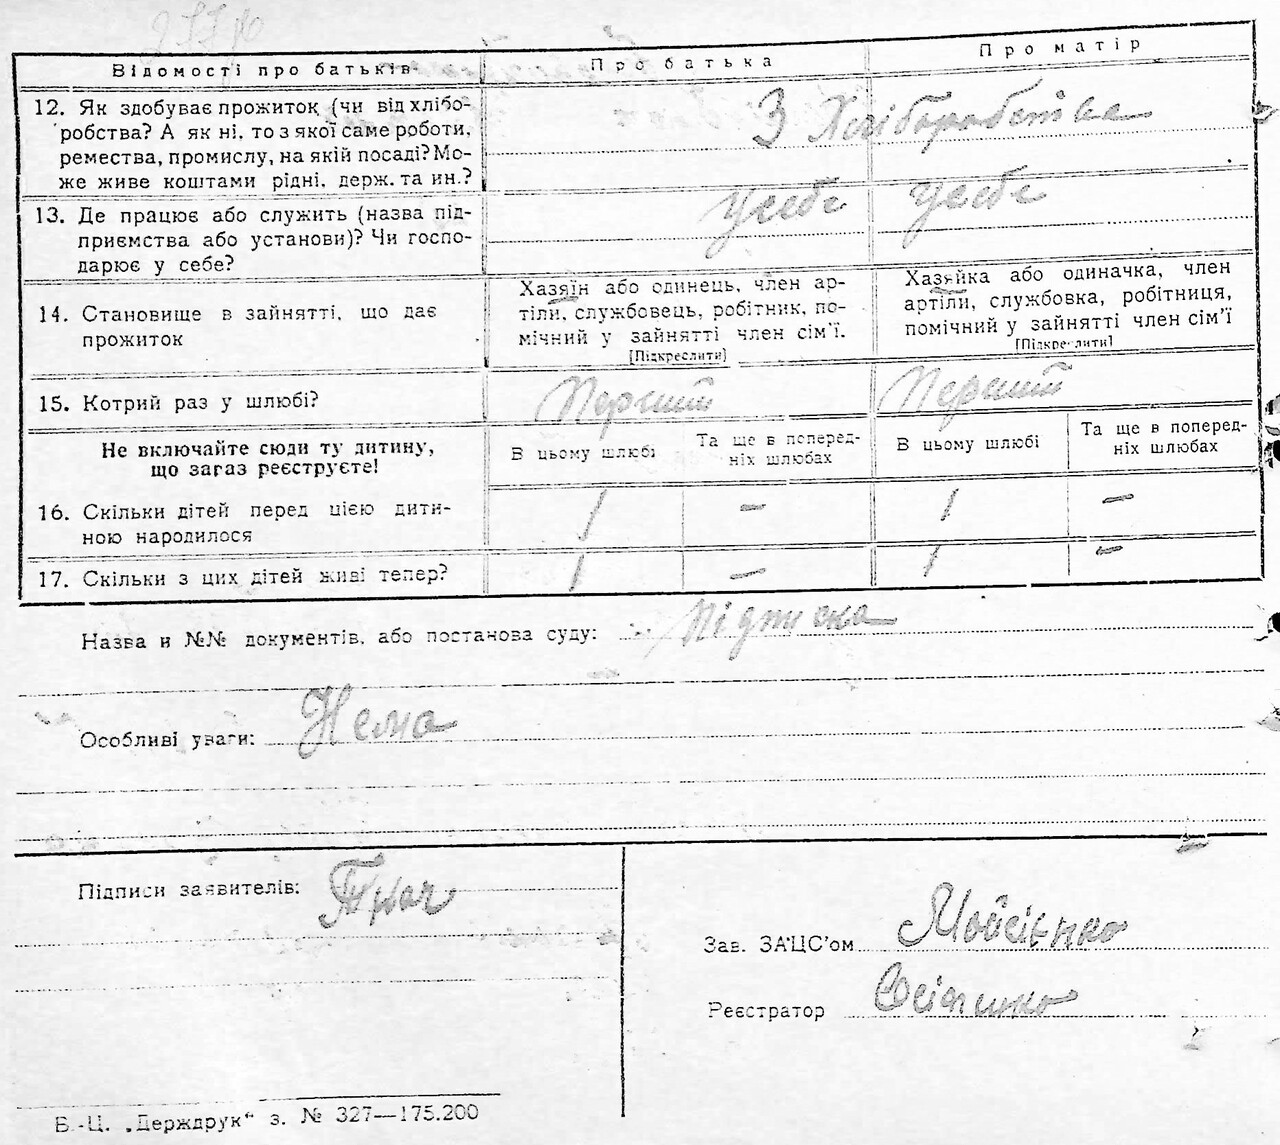 Відомості про батьків
Про батька
Про матір
12. Як здобуває прожиток (чи від хлібо-
робства? А як ні, то з якої саме роботи,
ремества, промислу, на якій посаді? Мо-
же живе коштами рідні, держ. та ин.?
З Хліборобства
13. Де працює або служить (назва під-
приємства або установи)? Чи госпо-
дарює у себе?
усебе
усебе
14. Становище в зайнятті, що дає
прожиток
Хазяїн або одинець, член ар-
тіли, службовець, робітник, по-
мічний у зайнятті член сім'ї.
[Підкреслити]
Хазяйка або одиначка, член
артіли, службовка, робітниця,
помічний у зайнятті член сім'ї
[Підкреслити]
15. Котрий раз у шлюбі?
Перший
Перший
Не включайте сюди ту дитину,
що загаз реєструєте!
В цьому шлюбі
Та ще в поперед-
ніх шлюбах
В цьому шлюбі
Та ще в поперед-
ніх шлюбах
16. Скільки дітей перед цією дити-
ною народилося
1
—
1
—
17. Скільки з цих дітей живі тепер?
1
—
1
—
Назва й №№ документів, або постанова суду: підписка
Особливі уваги: Нема
Підписи заявителів: Ткач
Зав. ЗАЦС'ом Мойсієнко
Реєстратор
Б.-Ц. „Держдрук“ з. № 327—175.200